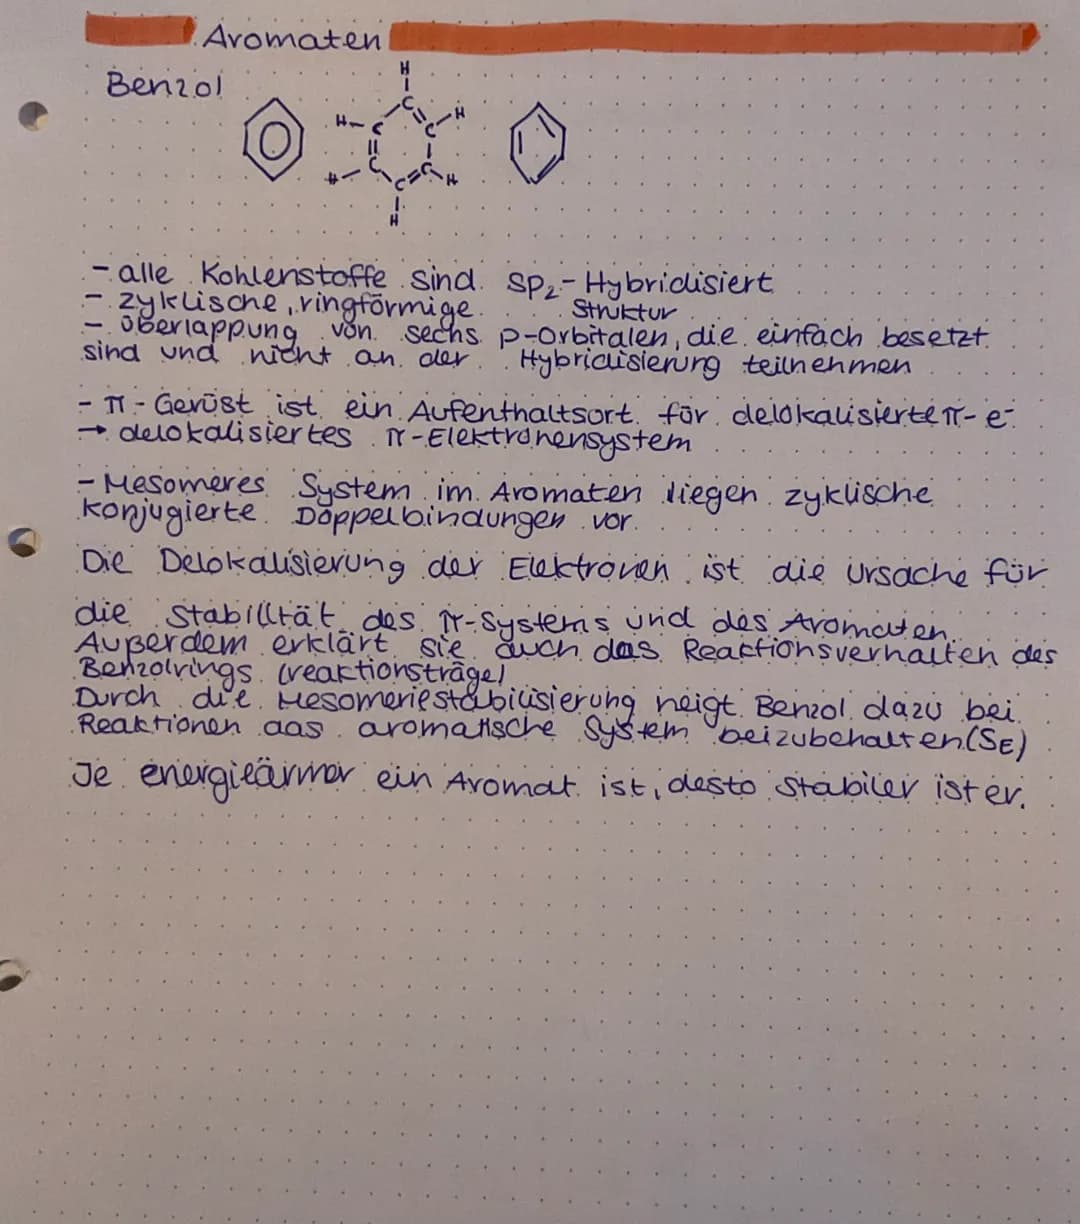 Aromaten
Benzol
H
H-C C C-H
C C
H- C -H
H
- alle Kohlenstoffe sind sp₂-Hybridisiert
- zyklische, ringförmige Struktur
- Überlappung von sechs p-Orbitalen, die einfach besetzt
sind und nicht an der Hybridisierung teilnehmen
- π-Gerüst ist ein Aufenthaltsort für delokalisierte π-e⁻
→ delokalisiertes π-Elektronensystem
- Mesomeres System im Aromaten liegen zyklische
konjugierte Doppelbindungen vor.
Die Delokalisierung der Elektronen ist die Ursache für
die Stabilität des π-Systems und des Aromaten.
Außerdem erklärt sie auch das Reaktionsverhalten des
Benzolrings (reaktionsträge)
Durch die Mesomeriestabilisierung neigt Benzol dazu bei
Reaktionen das aromatische System beizubehalten (SE)
Je energieärmer ein Aromat ist, desto stabiler ist er.